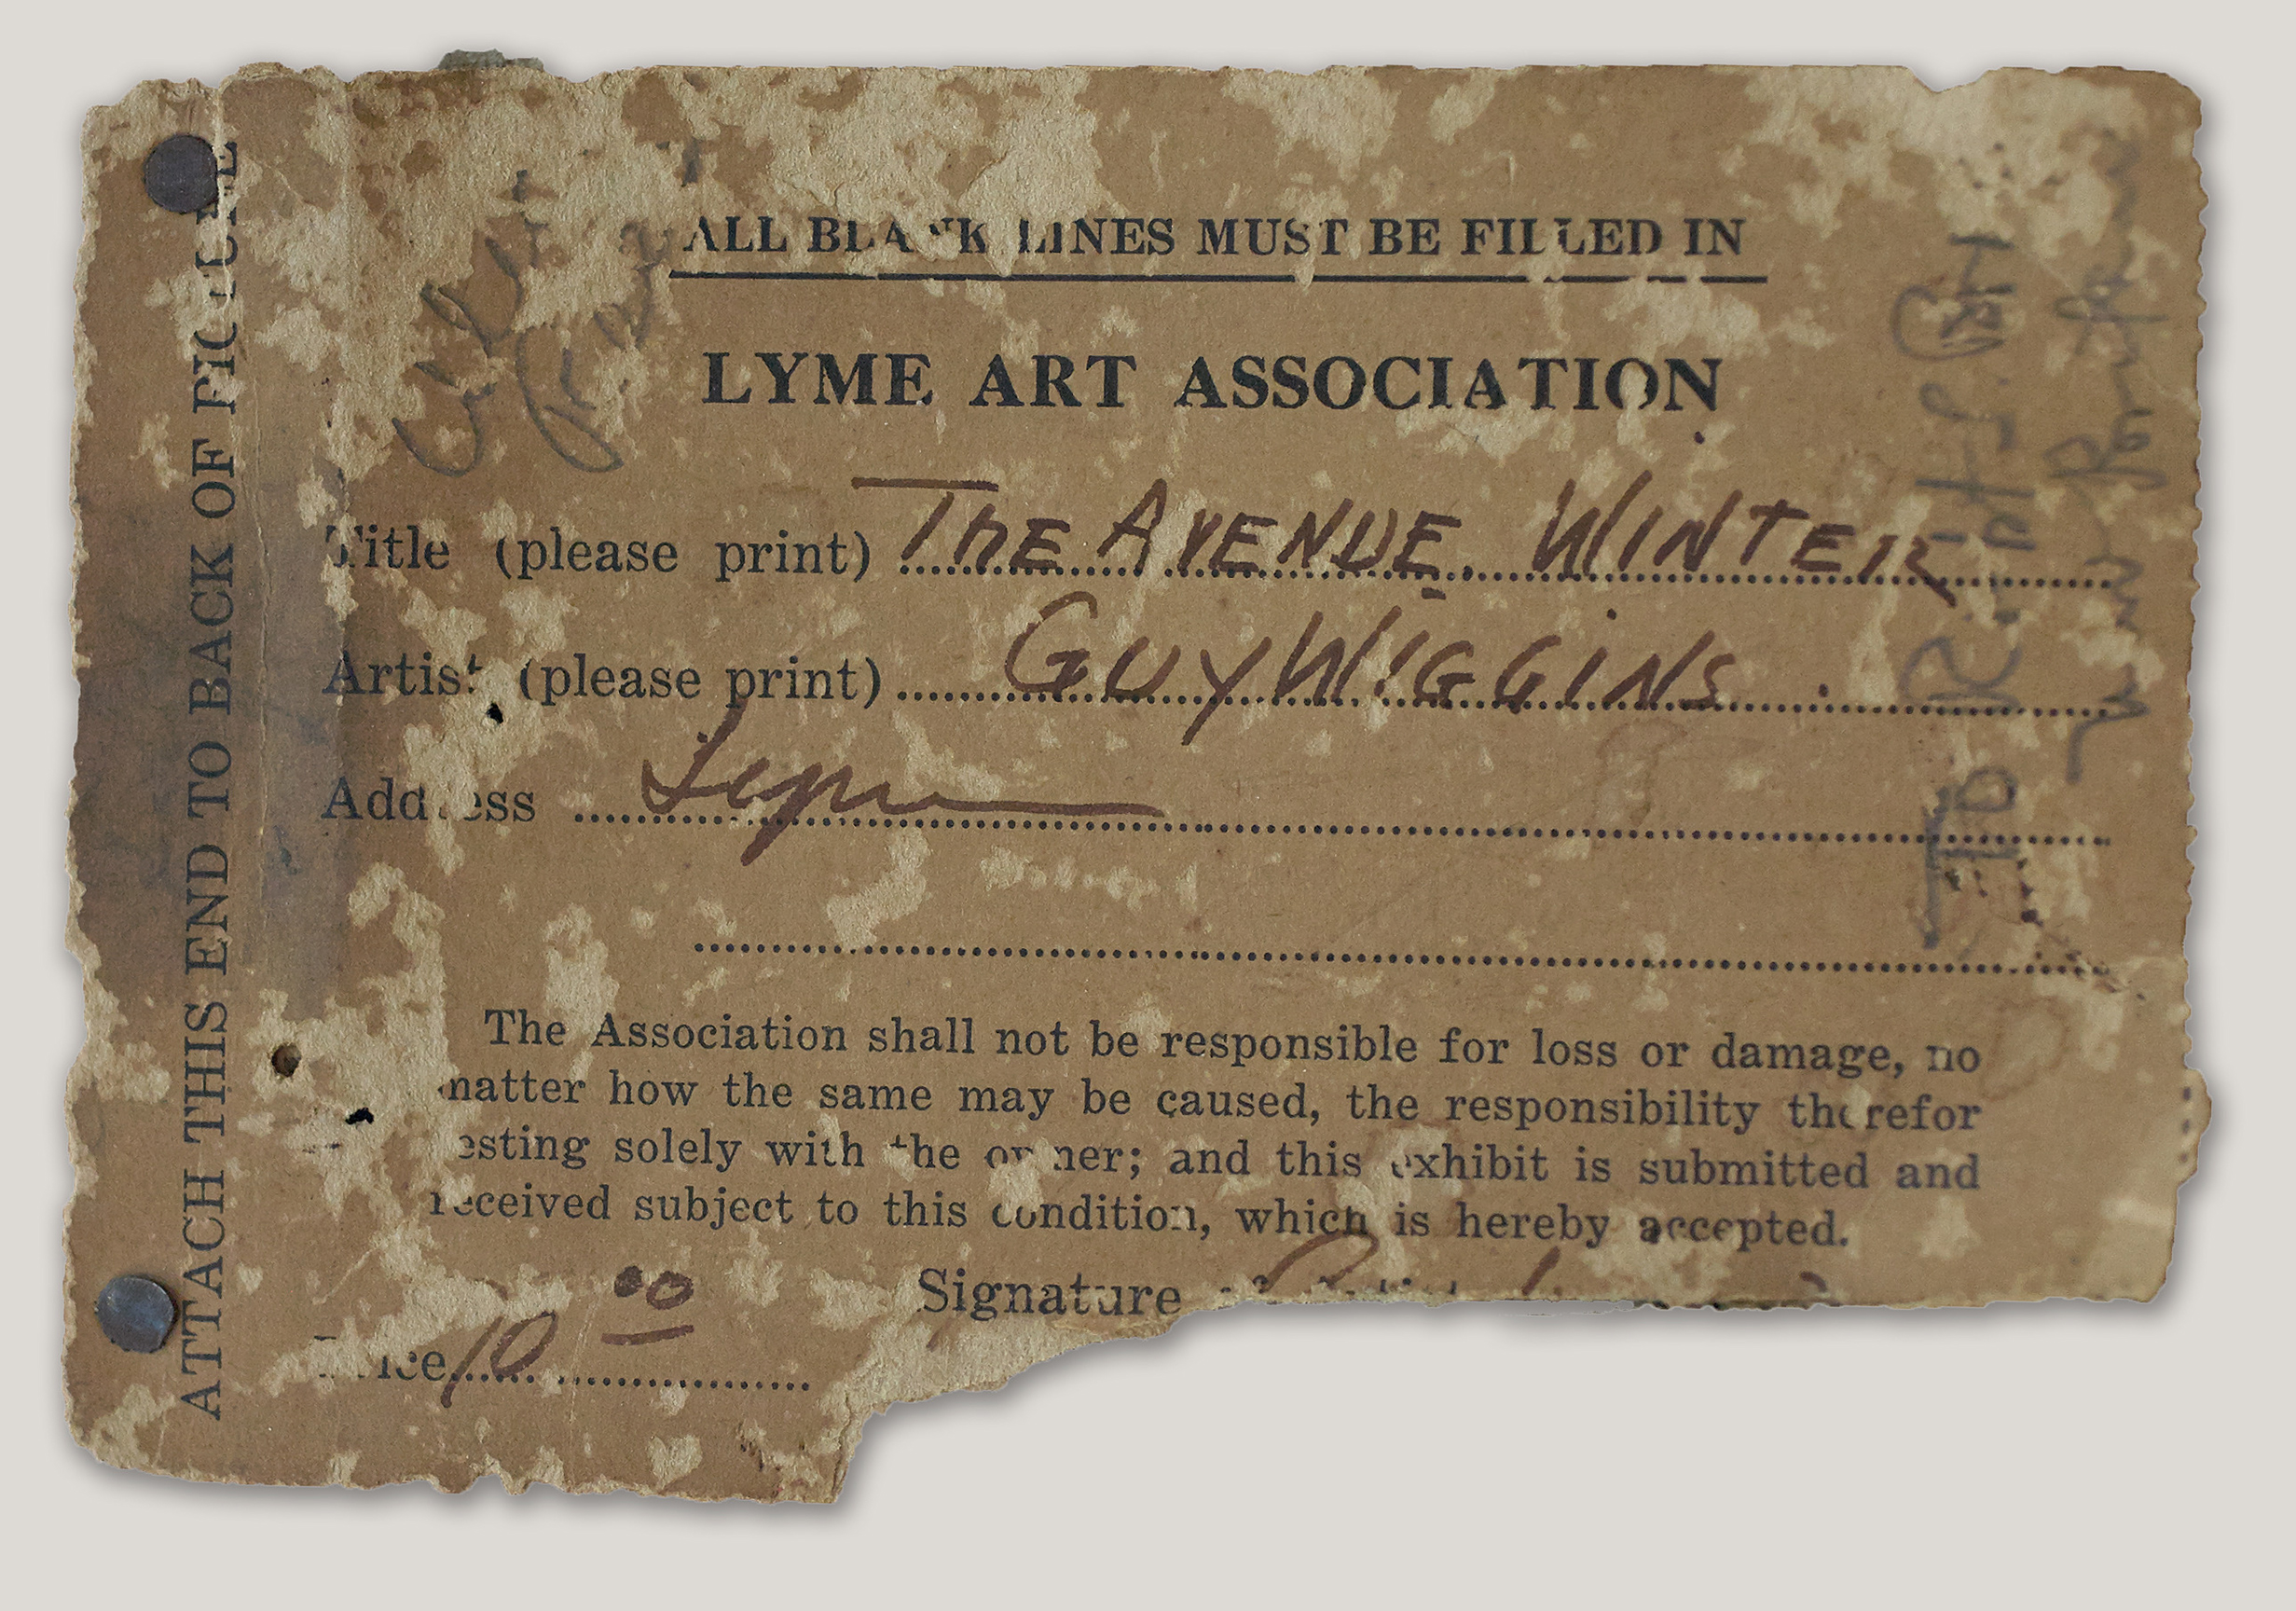 ATTACH THIS END TO BACK OF PICTURE
ALL BLANK LINES MUST BE FILLED IN
LYME ART ASSOCIATION
Title (please print) THE AVENUE. WINTER
Artist (please print) GUY WIGGINS
Address Lyme
The Association shall not be responsible for loss or damage, no
matter how the same may be caused, the responsibility therefor
resting solely with the owner; and this exhibit is submitted and
received subject to this condition, which is hereby accepted.
Signature
Price 10 00
To